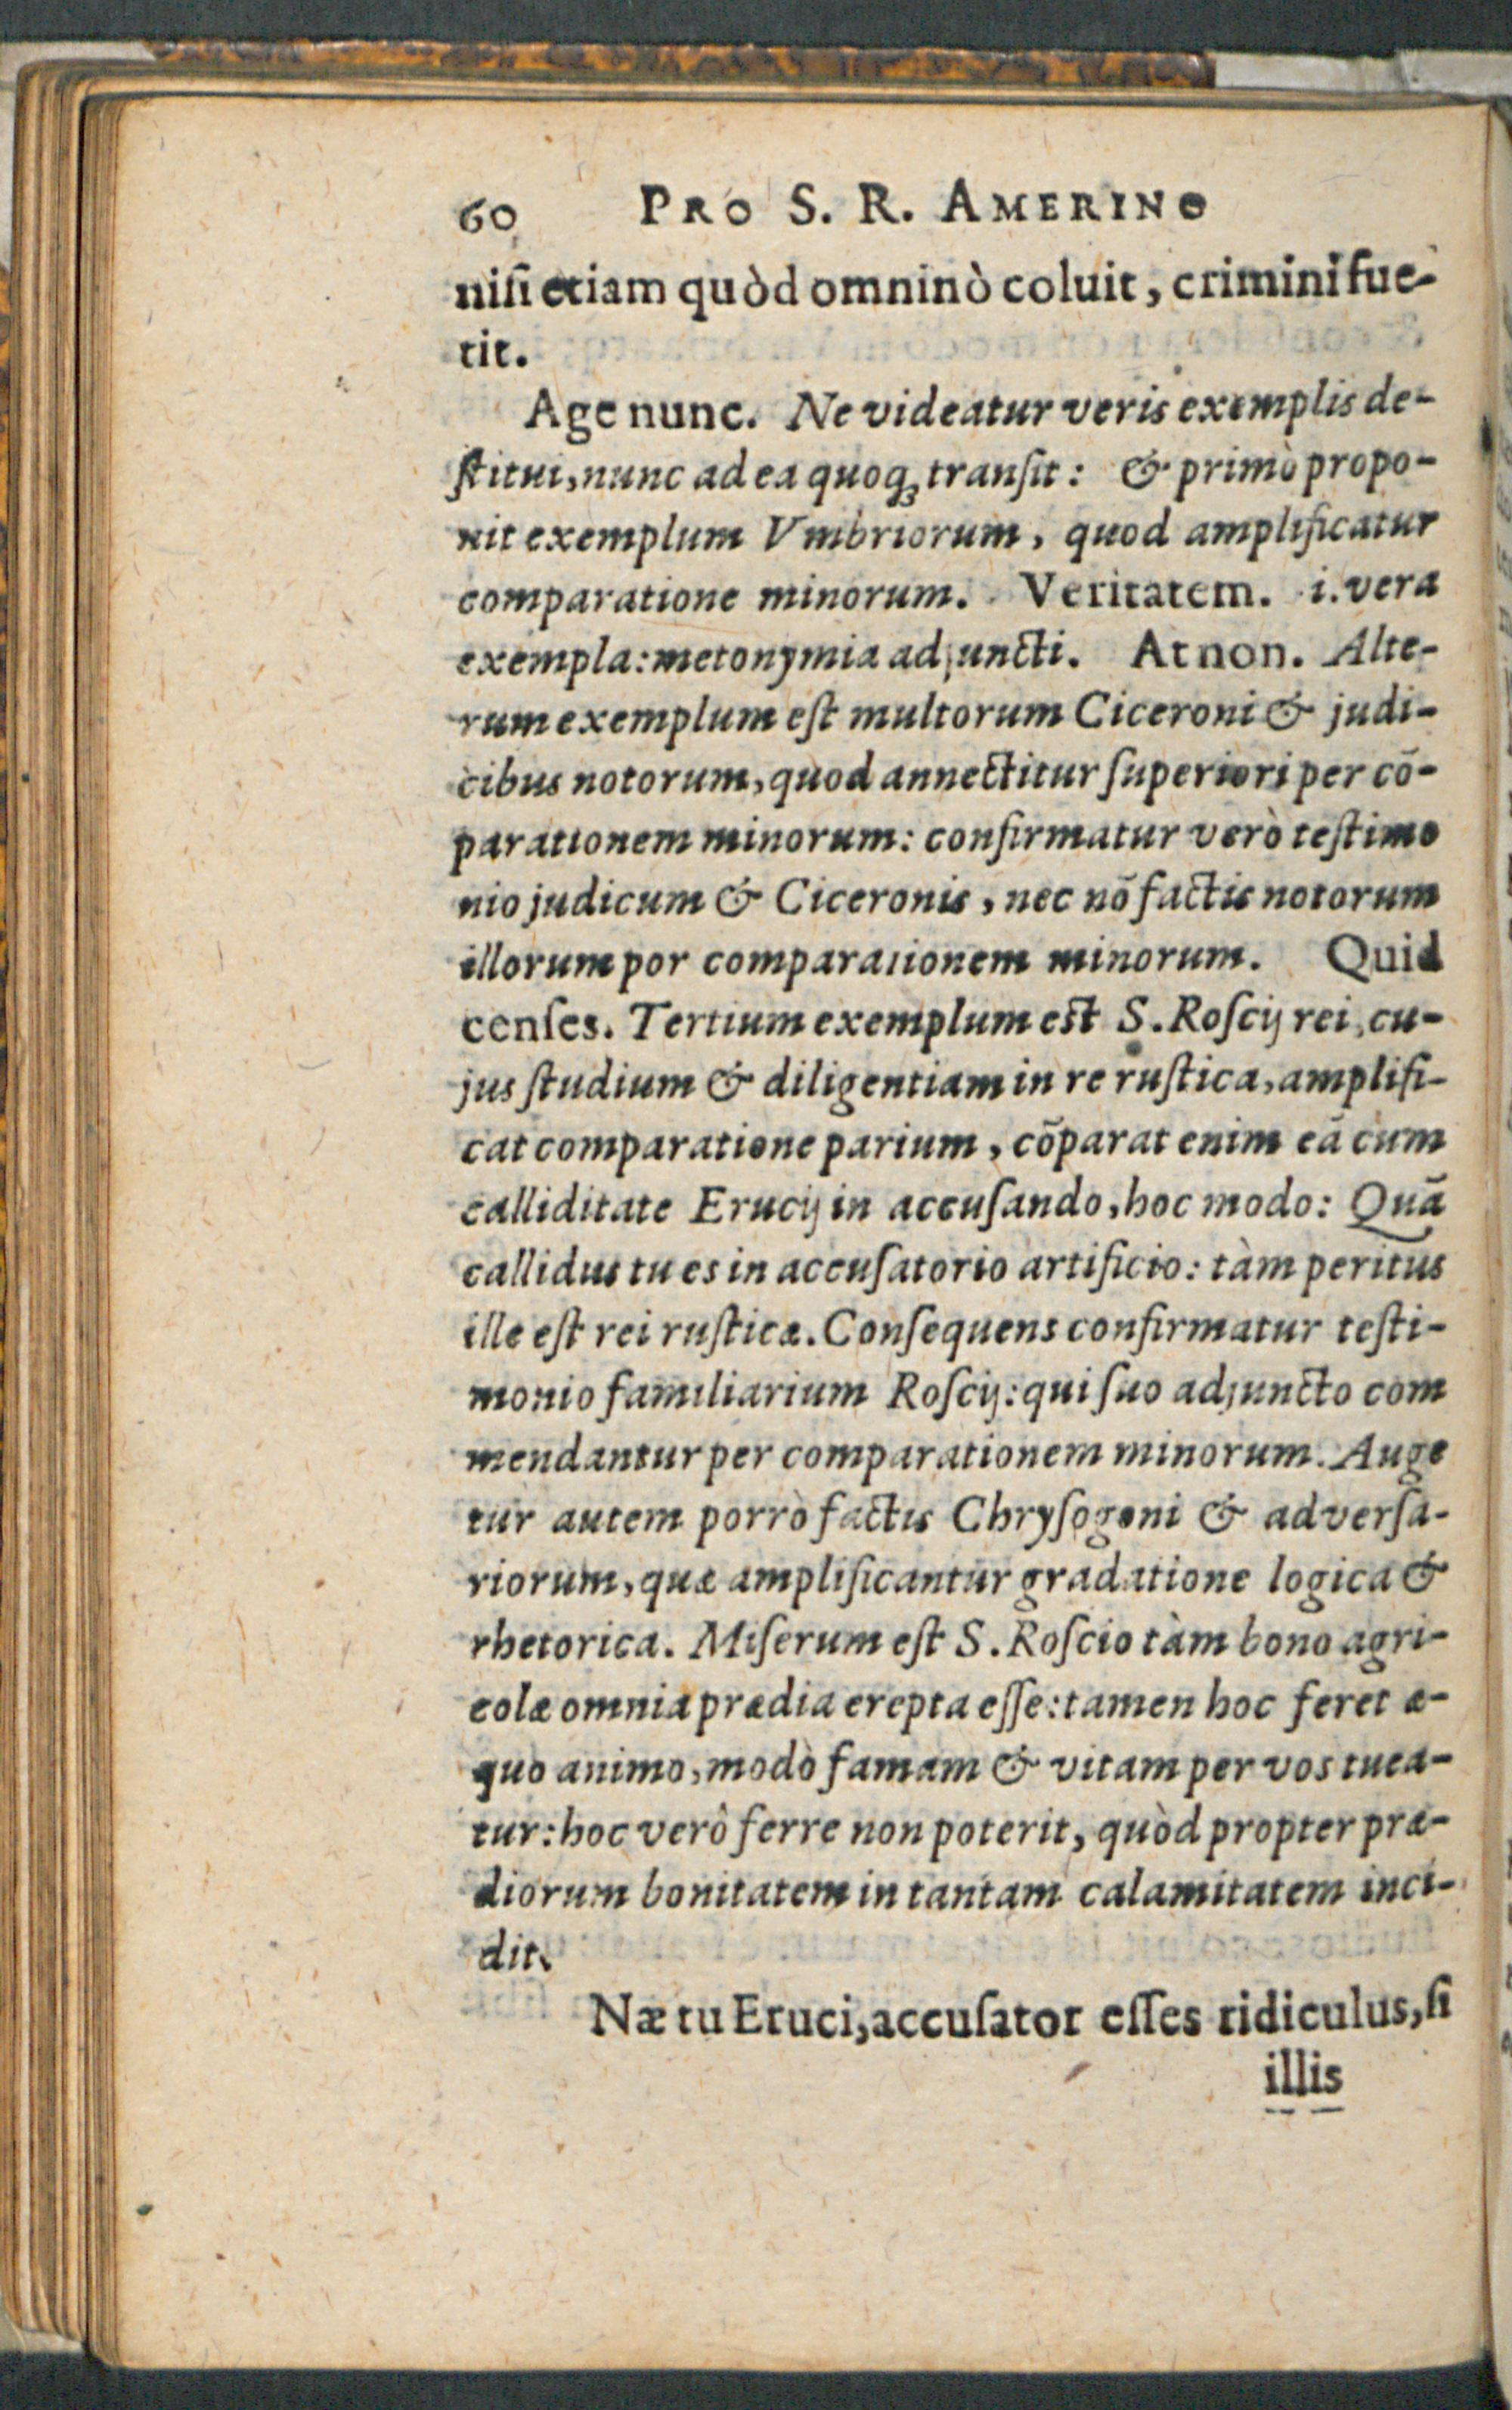 60 PRO S. R. AMERINO
niſi etiam quòd omninò coluit, crimini fue-
rit.
Age nunc. Ne videatur veris exemplis de-
ſtitui, nunc ad ea quoqꝫ tranſit: & primò propo-
nit exemplum Vmbriorum, quod amplificatur
comparatione minorum. Veritatem. i. vera
exempla: metonymia adjuncti. At non. Alte-
rum exemplum eſt multorum Ciceroni & judi-
cibus notorum, quod annectitur ſuperiori per cō-
parationem minorum: confirmatur verò teſtimo
nio judicum & Ciceronis, nec nō factis notorum
illorum por comparationem minorum. Quid
cenſes. Tertium exemplum eſt S. Roſcij rei, cu-
jus ſtudium & diligentiam in re ruſtica, amplifi-
cat comparatione parium, cōparat enim eā cum
calliditate Erucij in accuſando, hoc modo: Quā
callidus tu es in accuſatorio artificio: tàm peritus
ille eſt rei ruſticæ. Conſequens confirmatur teſti-
monio familiarium Roſcij: qui ſuo adjuncto com
mendantur per comparationem minorum. Auge
tur autem porrò factis Chryſogoni & adverſa-
riorum, quæ amplificantur gradatione logica &
rhetorica. Miſerum eſt S. Roſcio tàm bono agri-
colæ omnia prædia erepta eſſe: tamen hoc feret æ-
quo animo, modò famam & vitam per vos tuea-
tur: hoc verò ferre non poterit, quòd propter præ-
diorum bonitatem in tantam calamitatem inci-
dit.
Næ tu Eruci, accuſator eſſes ridiculus, ſi
illis